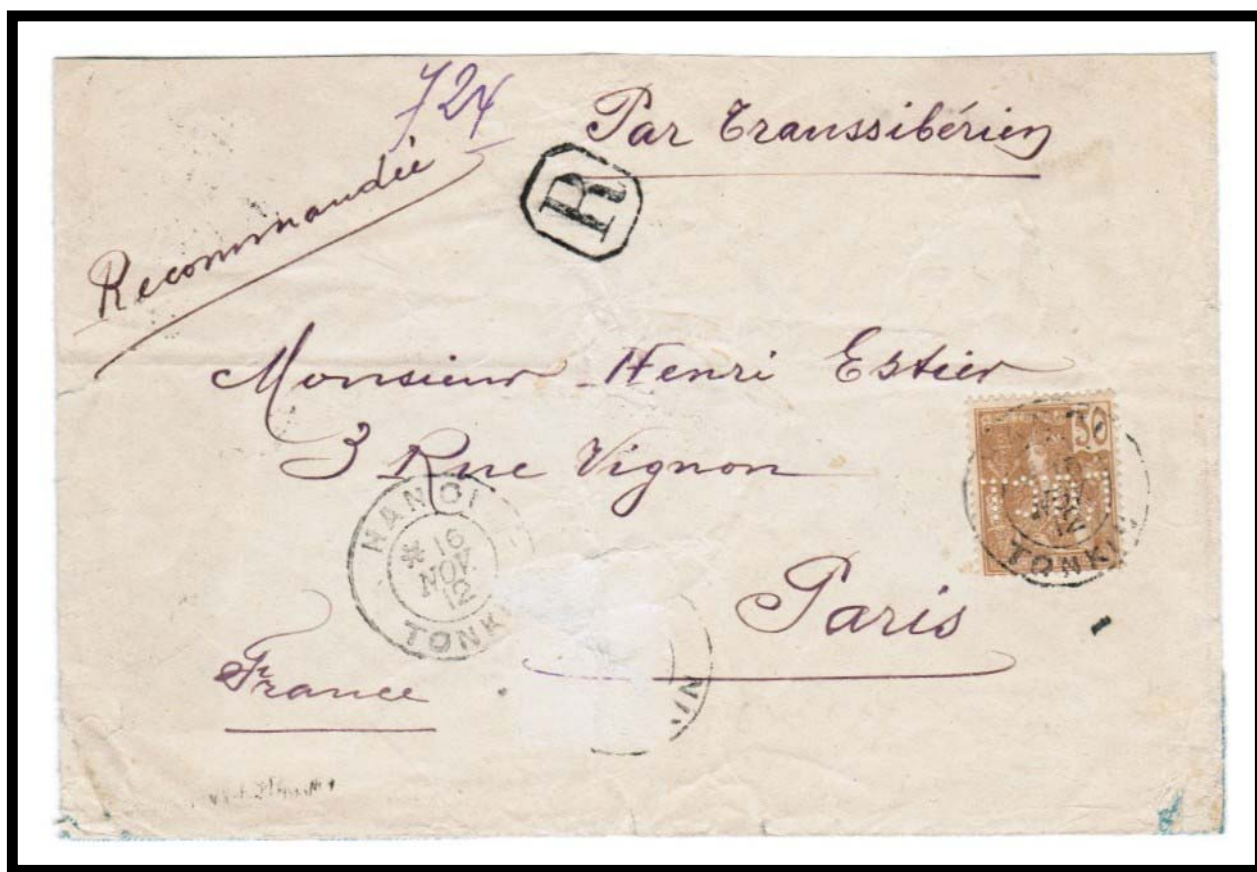 724
Par Transsibérien
Recommandée
R
Monsieur Henri Estier
3 Rue Vignon
Paris
France
HANOI
* 16
NOV
12
TONKI
50
NOV
12
TONKIN
IN